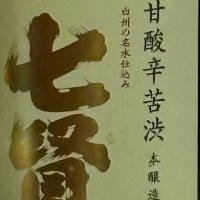 甘酸辛苦渋
本醸造
白州の名水仕込み
七賢